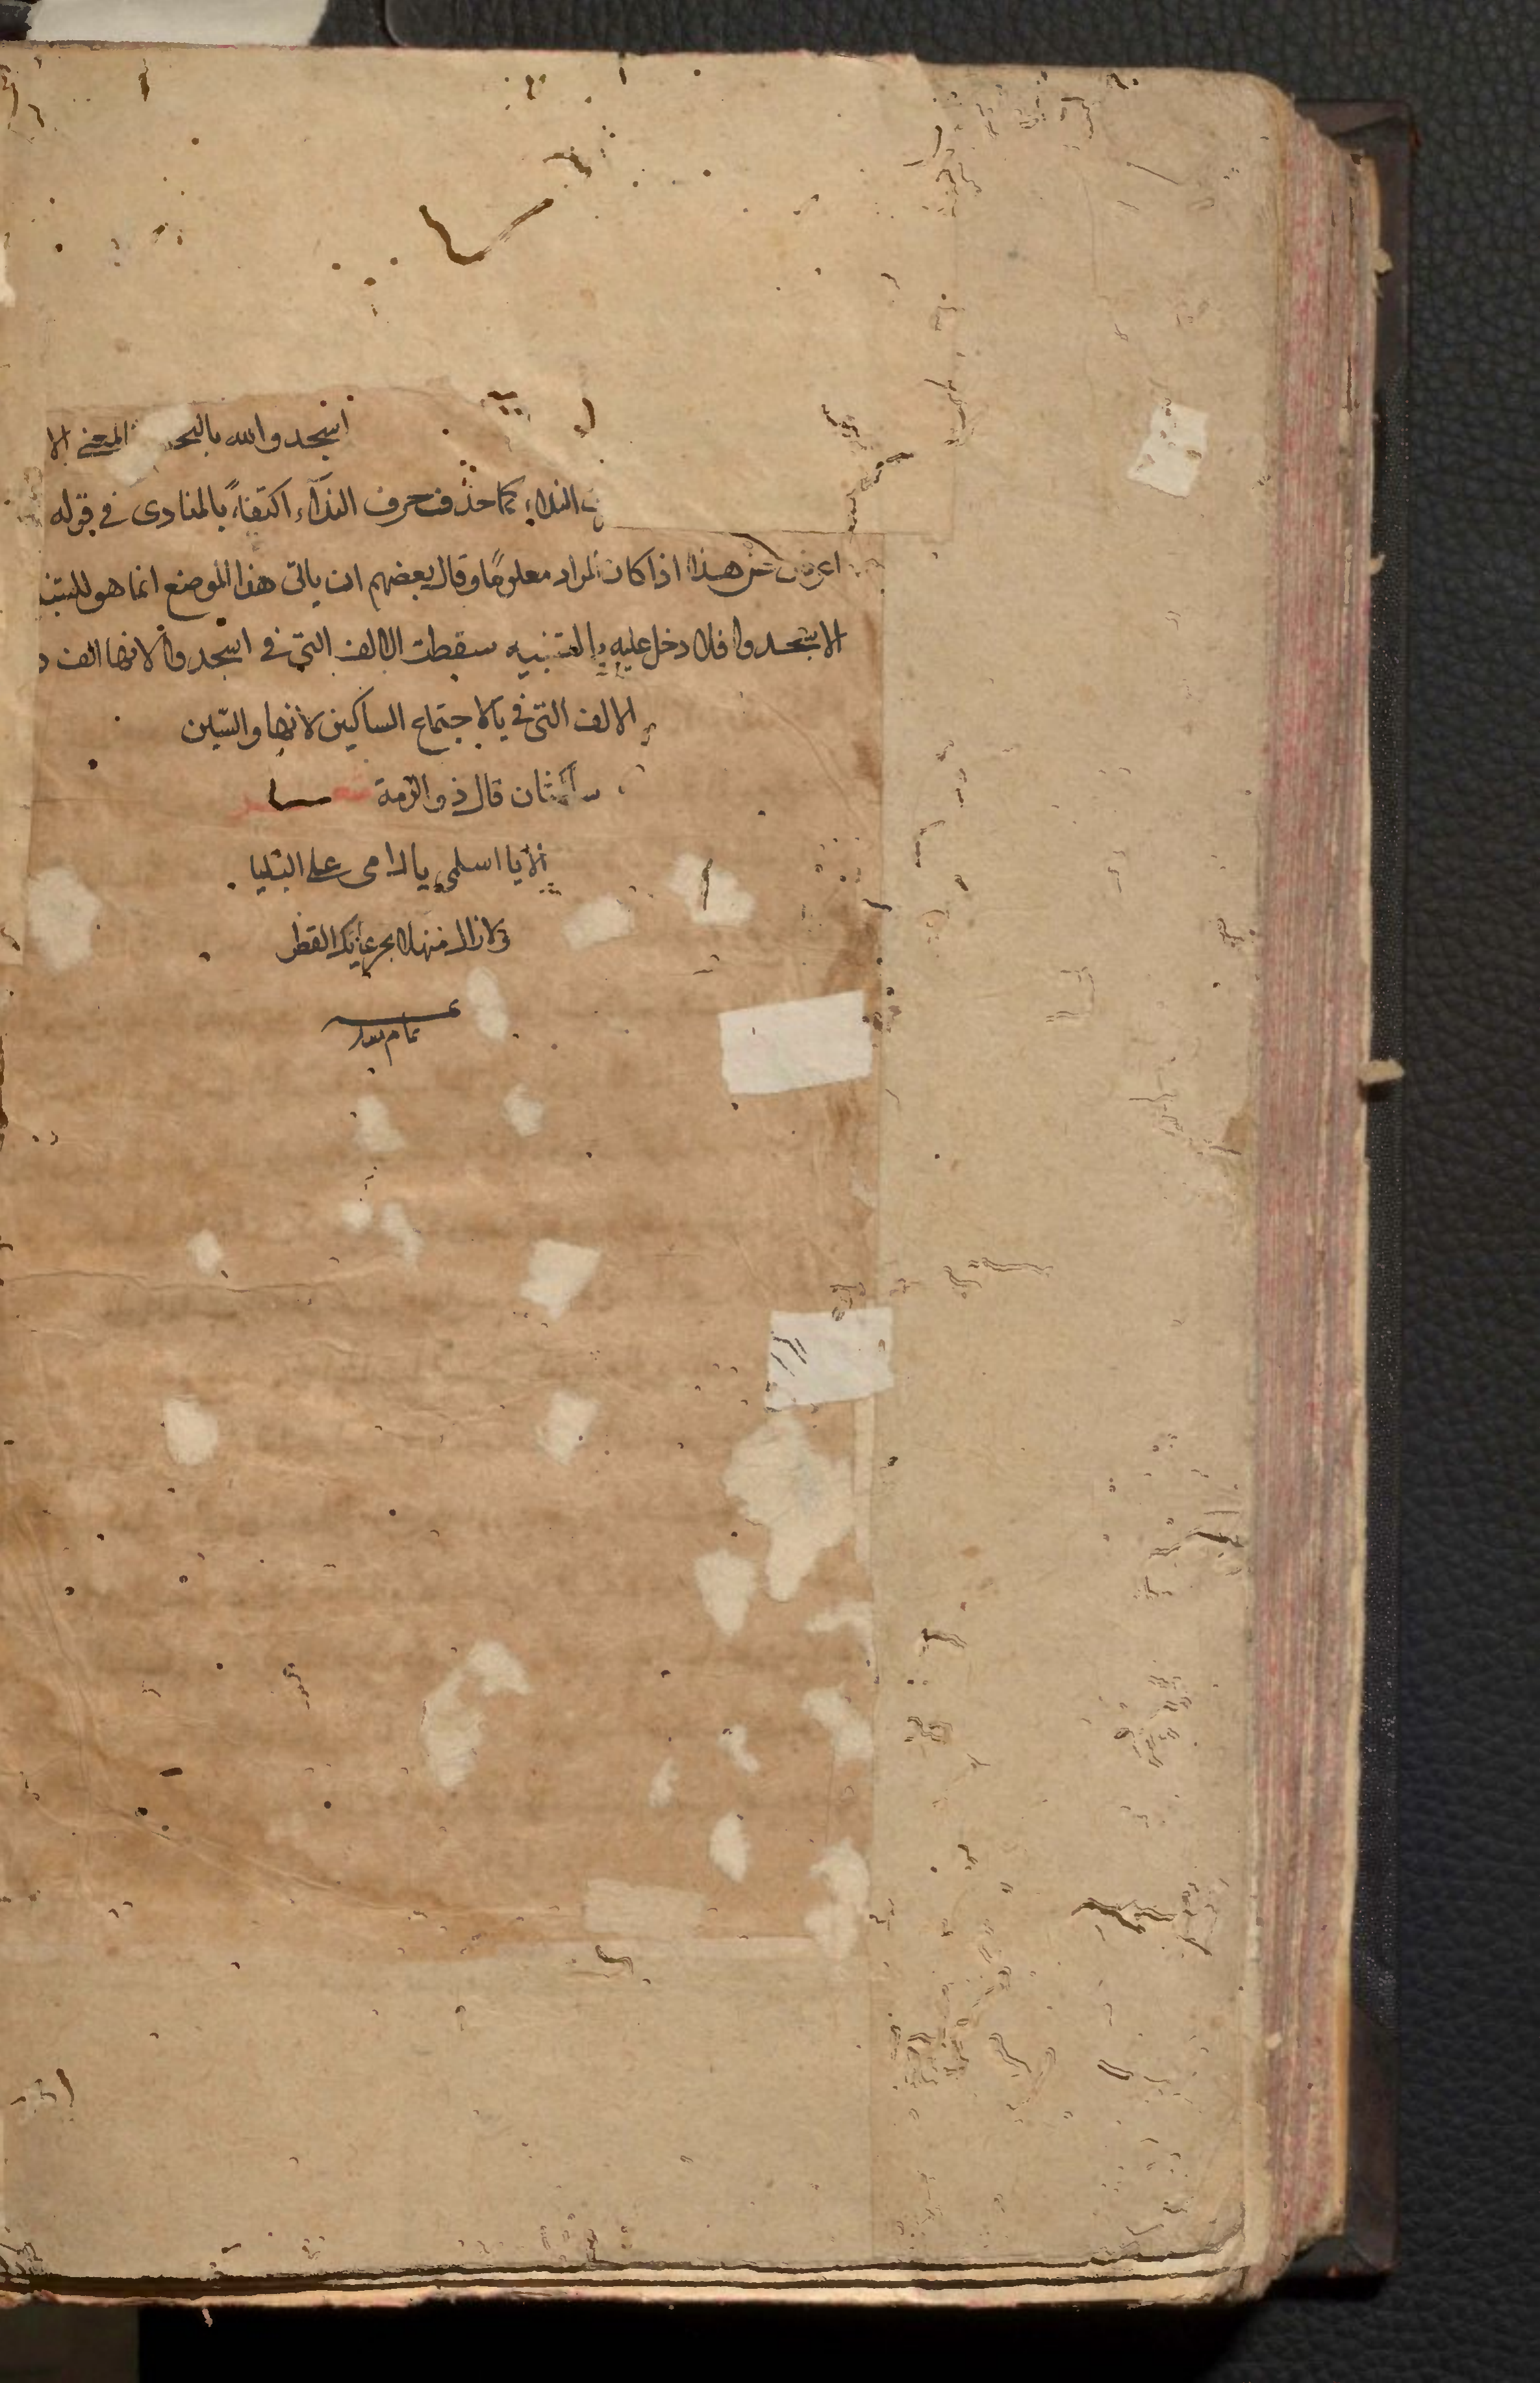 اسجدوا لله بالتخ المعنى الا
النداء كما حذف حرف النداء اكتفاءً بالمنادى في قوله
اعرض عن هذا اذا كان المراد معلومًا وقال بعضهم ان يا في هذا الموضع انما هو للتنبيه
الا يسجدوا فلا دخل عليه يا للتنبيه سقطت الالف التي في اسجدوا لانها الف
الالف التي في يا لاجتماع الساكنين لانها والسين
ساكنان قال ذو الرمة
الا يا اسلمى يا دار مى على البلى
ولا زال منهلا بجرعائك القطر
تمام